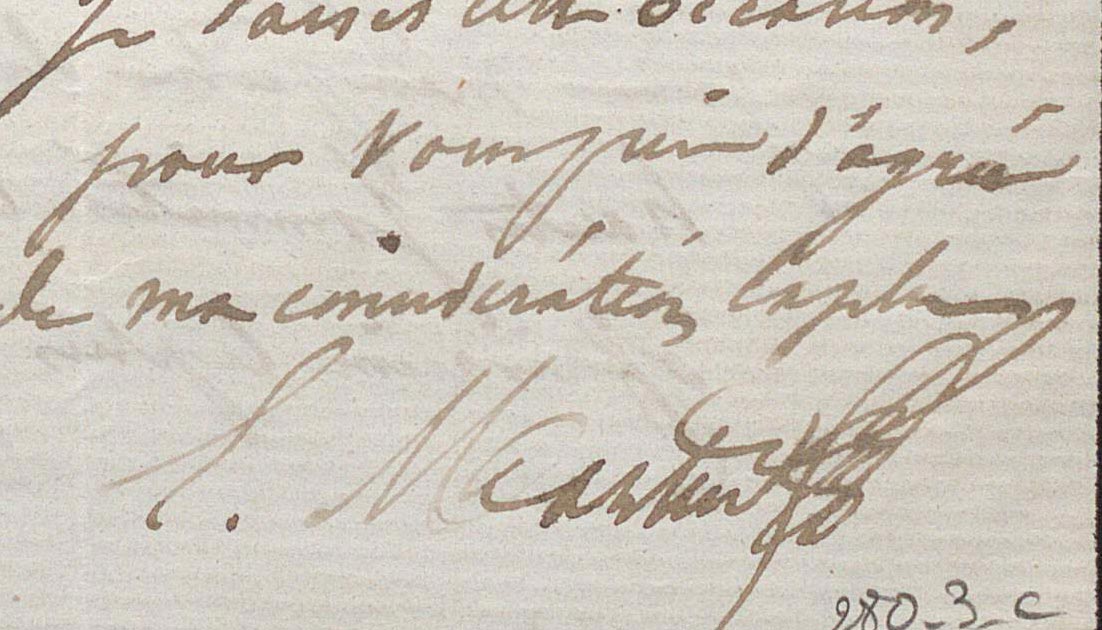 Je saisis cette occasion,
pour vous prier d'agréer
de ma considération la plus
280_3_c